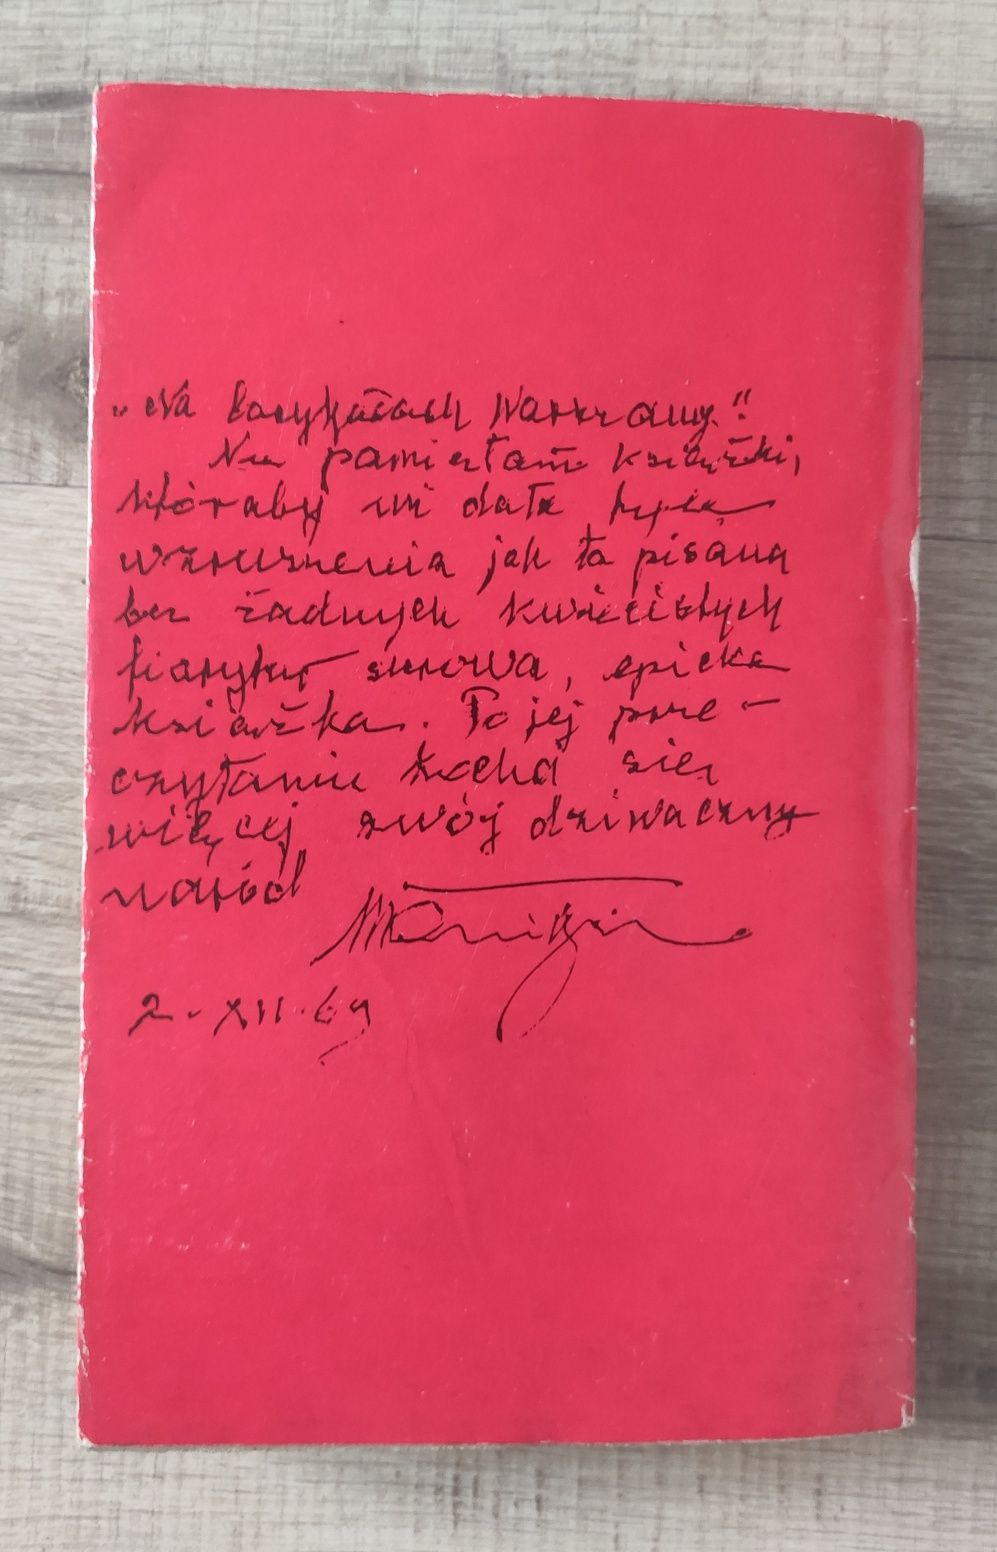 „Na barykadach Warszawy."
Nie pamiętam książki,
któraby mi dała tyle
wzruszenia jak ta pisana
bez żadnych kwiecistych
surowa, epicka
książka. Po jej prze-
czytaniu kocha się
więcej swój dziwaczny
naród
2. XII. 69